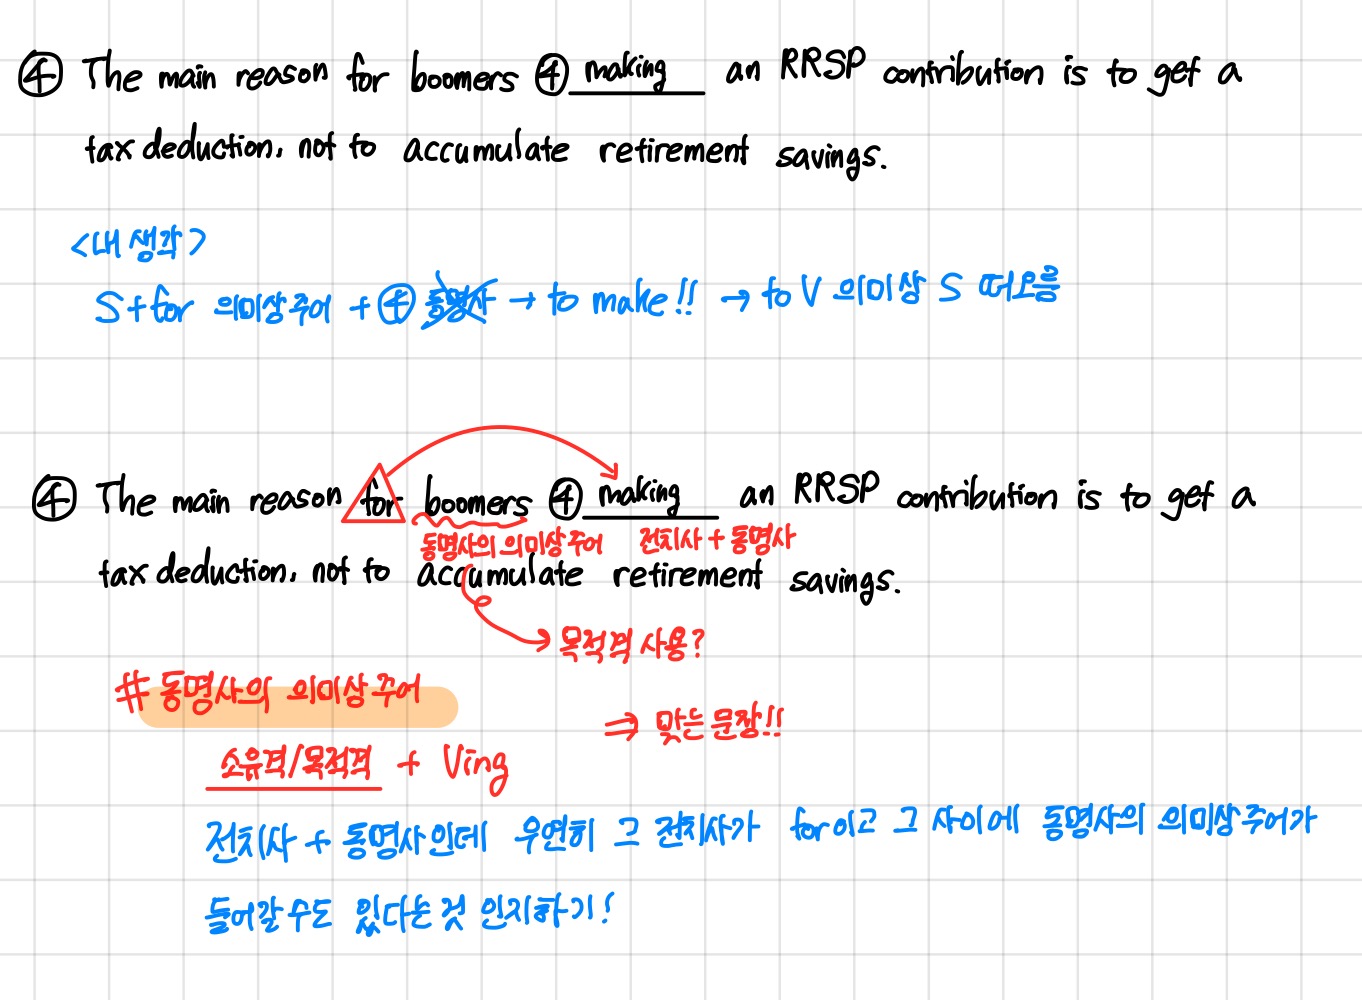 ④ The main reason for boomers ④ making an RRSP contribution is to get a
tax deduction, not to accumulate retirement savings.
<내 생각>
S+for 의미상주어 + ④ 동명사 → to make!! → to V 의미상 S 떠오름
④ The main reason for boomers ④ making an RRSP contribution is to get a
동명사의 의미상주어 전치사 + 동명사
tax deduction, not to accumulate retirement savings.
→ 목적격 사용?
# 동명사의 의미상 주어
⇒ 맞는 문장!!
소유격/목적격 + Ving
전치사 + 동명사인데 우연히 그 전치사가 for이고 그 사이에 동명사의 의미상주어가
들어갈 수도 있다는 것 인지하기!